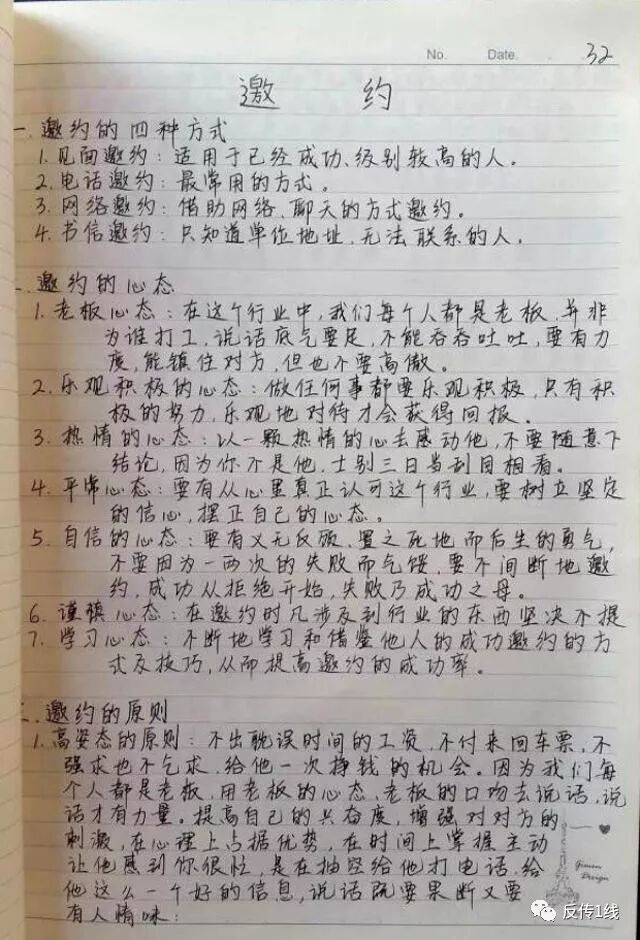 No.    Date.    32
邀 约
一.邀约的四种方式
1.见面邀约：适用于已经成功、级别较高的人。
2.电话邀约：最常用的方式。
3.网络邀约：借助网络、聊天的方式邀约。
4.书信邀约：只知道单位地址，无法联系的人。
二.邀约的心态
1.老板心态：在这个行业中，我们每个人都是老板，并非
为谁打工，说话底气要足，不能吞吞吐吐，要有力
度，能镇住对方，但也不要高傲。
2.乐观积极的心态：做任何事都要乐观积极，只有积
极的努力，乐观地对待才会获得回报。
3.热情的心态：以一颗热情的心去感动他，不要随意下
结论，因为你不是他，士别三日当刮目相看。
4.平常心态：要有从心里真正认可这个行业，要树立坚定
的信心，摆正自己的心态。
5.自信的心态：要有义无反顾、置之死地而后生的勇气，
不要因为一两次的失败而气馁，要不间断地邀
约，成功从拒绝开始，失败乃成功之母。
6.谨慎心态：在邀约时凡涉及到行业的东西坚决不提
7.学习心态：不断地学习和借鉴他人的成功邀约的方
式及技巧，从而提高邀约的成功率。
三.邀约的原则
1.高姿态的原则：不出耽误时间的工资，不付来回车票，不
强求也不乞求，给他一次挣钱的机会。因为我们每
个人都是老板，用老板的心态、老板的口吻去说话，说
话才有力量。提高自己的兴奋度，增强对对方的
刺激，在心理上占据优势，在时间上掌握主动
让他感到你很忙，是在抽空给他打电话，给
他这么一个好的信息，说话既要果断又要
有人情味；
Design
反传1线